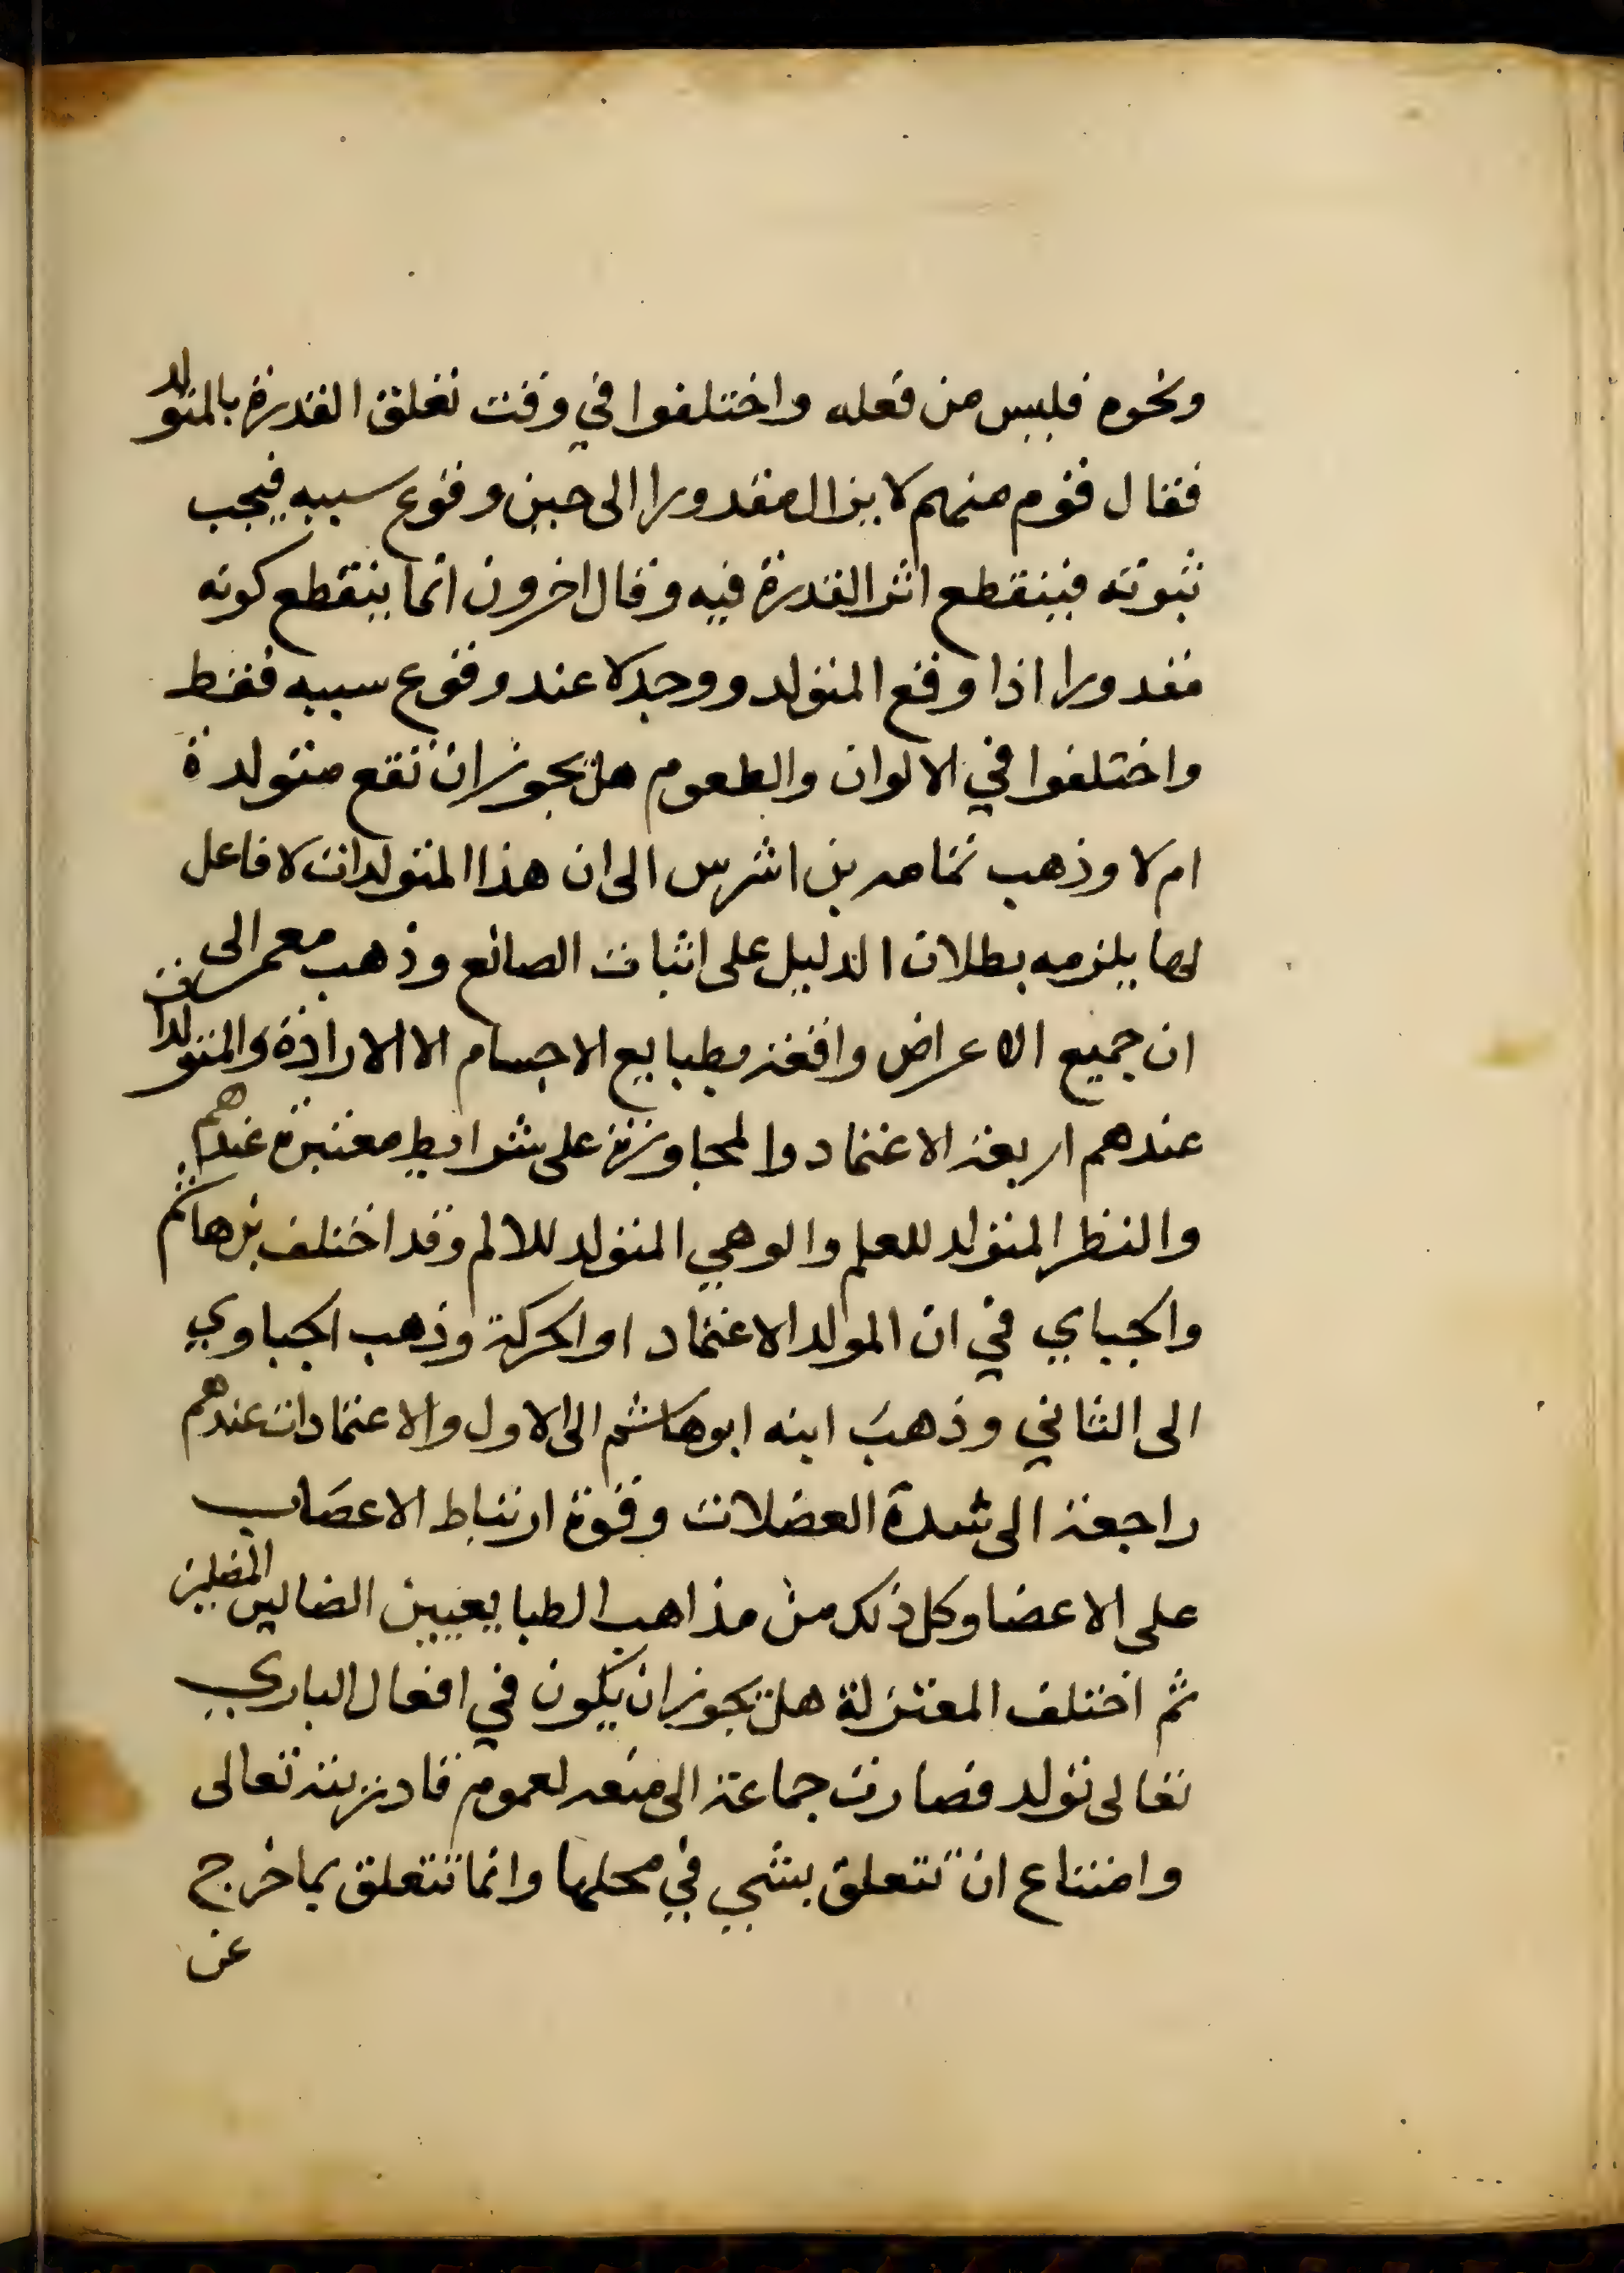 ونحوه فليس من فعله واختلفوا في وقت تعلق القدرة بالمتولد
فقال قوم منهم لا يزال مقدورا الى حين وقوع سببه فيجب
ثبوته فينقطع اثر القدرة فيه وقال اخرون انما ينقطع كونه
مقدورا اذا وقع المتولد ووجد لا عند وقوع سببه فقط
واختلفوا في الالوان والطعوم هل يجوز ان تقع متولدة
ام لا وذهب ثمامه بن اشرس الى ان هذا المتولدات لا فاعل
لها يلزمه بطلان الدليل على اثبات الصانع وذهب معمر الى
ان جميع الاعراض واقعة بطبايع الاجسام الا الارادة والمتولدات
عندهم اربعة الاعتماد والمجاورة على شرايط معتبرة عندهم
والنظر المتولد للعلم والوهي المتولد للالم وقد اختلف بن هاشم
والجباي في ان المولد الاعتماد او الحركة وذهب الجباوي
الى الثاني وذهب ابنه ابو هاشم الى الاول والاعتمادات عندهم
راجعة الى شدة العضلات وقوة ارتباط الاعصاب
على الاعضا وكل ذلك من مذاهب الطبايعيين الضالين المضلين
ثم اختلف المعتزلة هل يجوز ان يكون في افعال الباري
تعالى تولد فصارت جماعة الى منعه لعموم قادريته تعالى
وامتناع ان تتعلق بشي في محلها وانما تتعلق بما خرج
عن